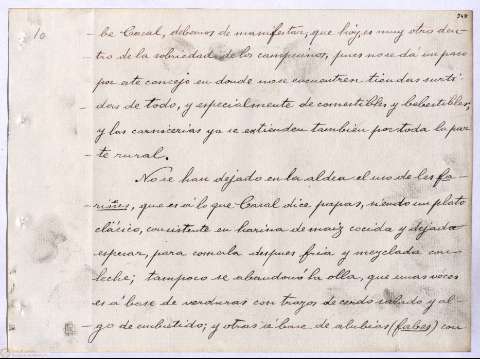 10
248
-be Casal, debemos de manifestar, que hoy es muy otro den-
-tro de la sobriedad de los campesinos, pues no se dá un paso
por este concejo en donde no se encuentren tiendas surti-
-das de todo, y especialmente de comestibles y bebestibles;
y las carnicerías ya se extienden también por toda la par-
-te rural.
No se han dejado en la aldea el uso de les fa-
-riñes, que es á lo que Casal dice papas, siendo un plato
clásico, consistente en harina de maiz cocida y dejada
espesar, para comerla despues fria y mezclada con
leche; tampoco se abandonó la olla, que unas veces
es á base de verduras con trozos de cerdo salado y al-
-go de embutido; y otras á base de alubias (fabes) con